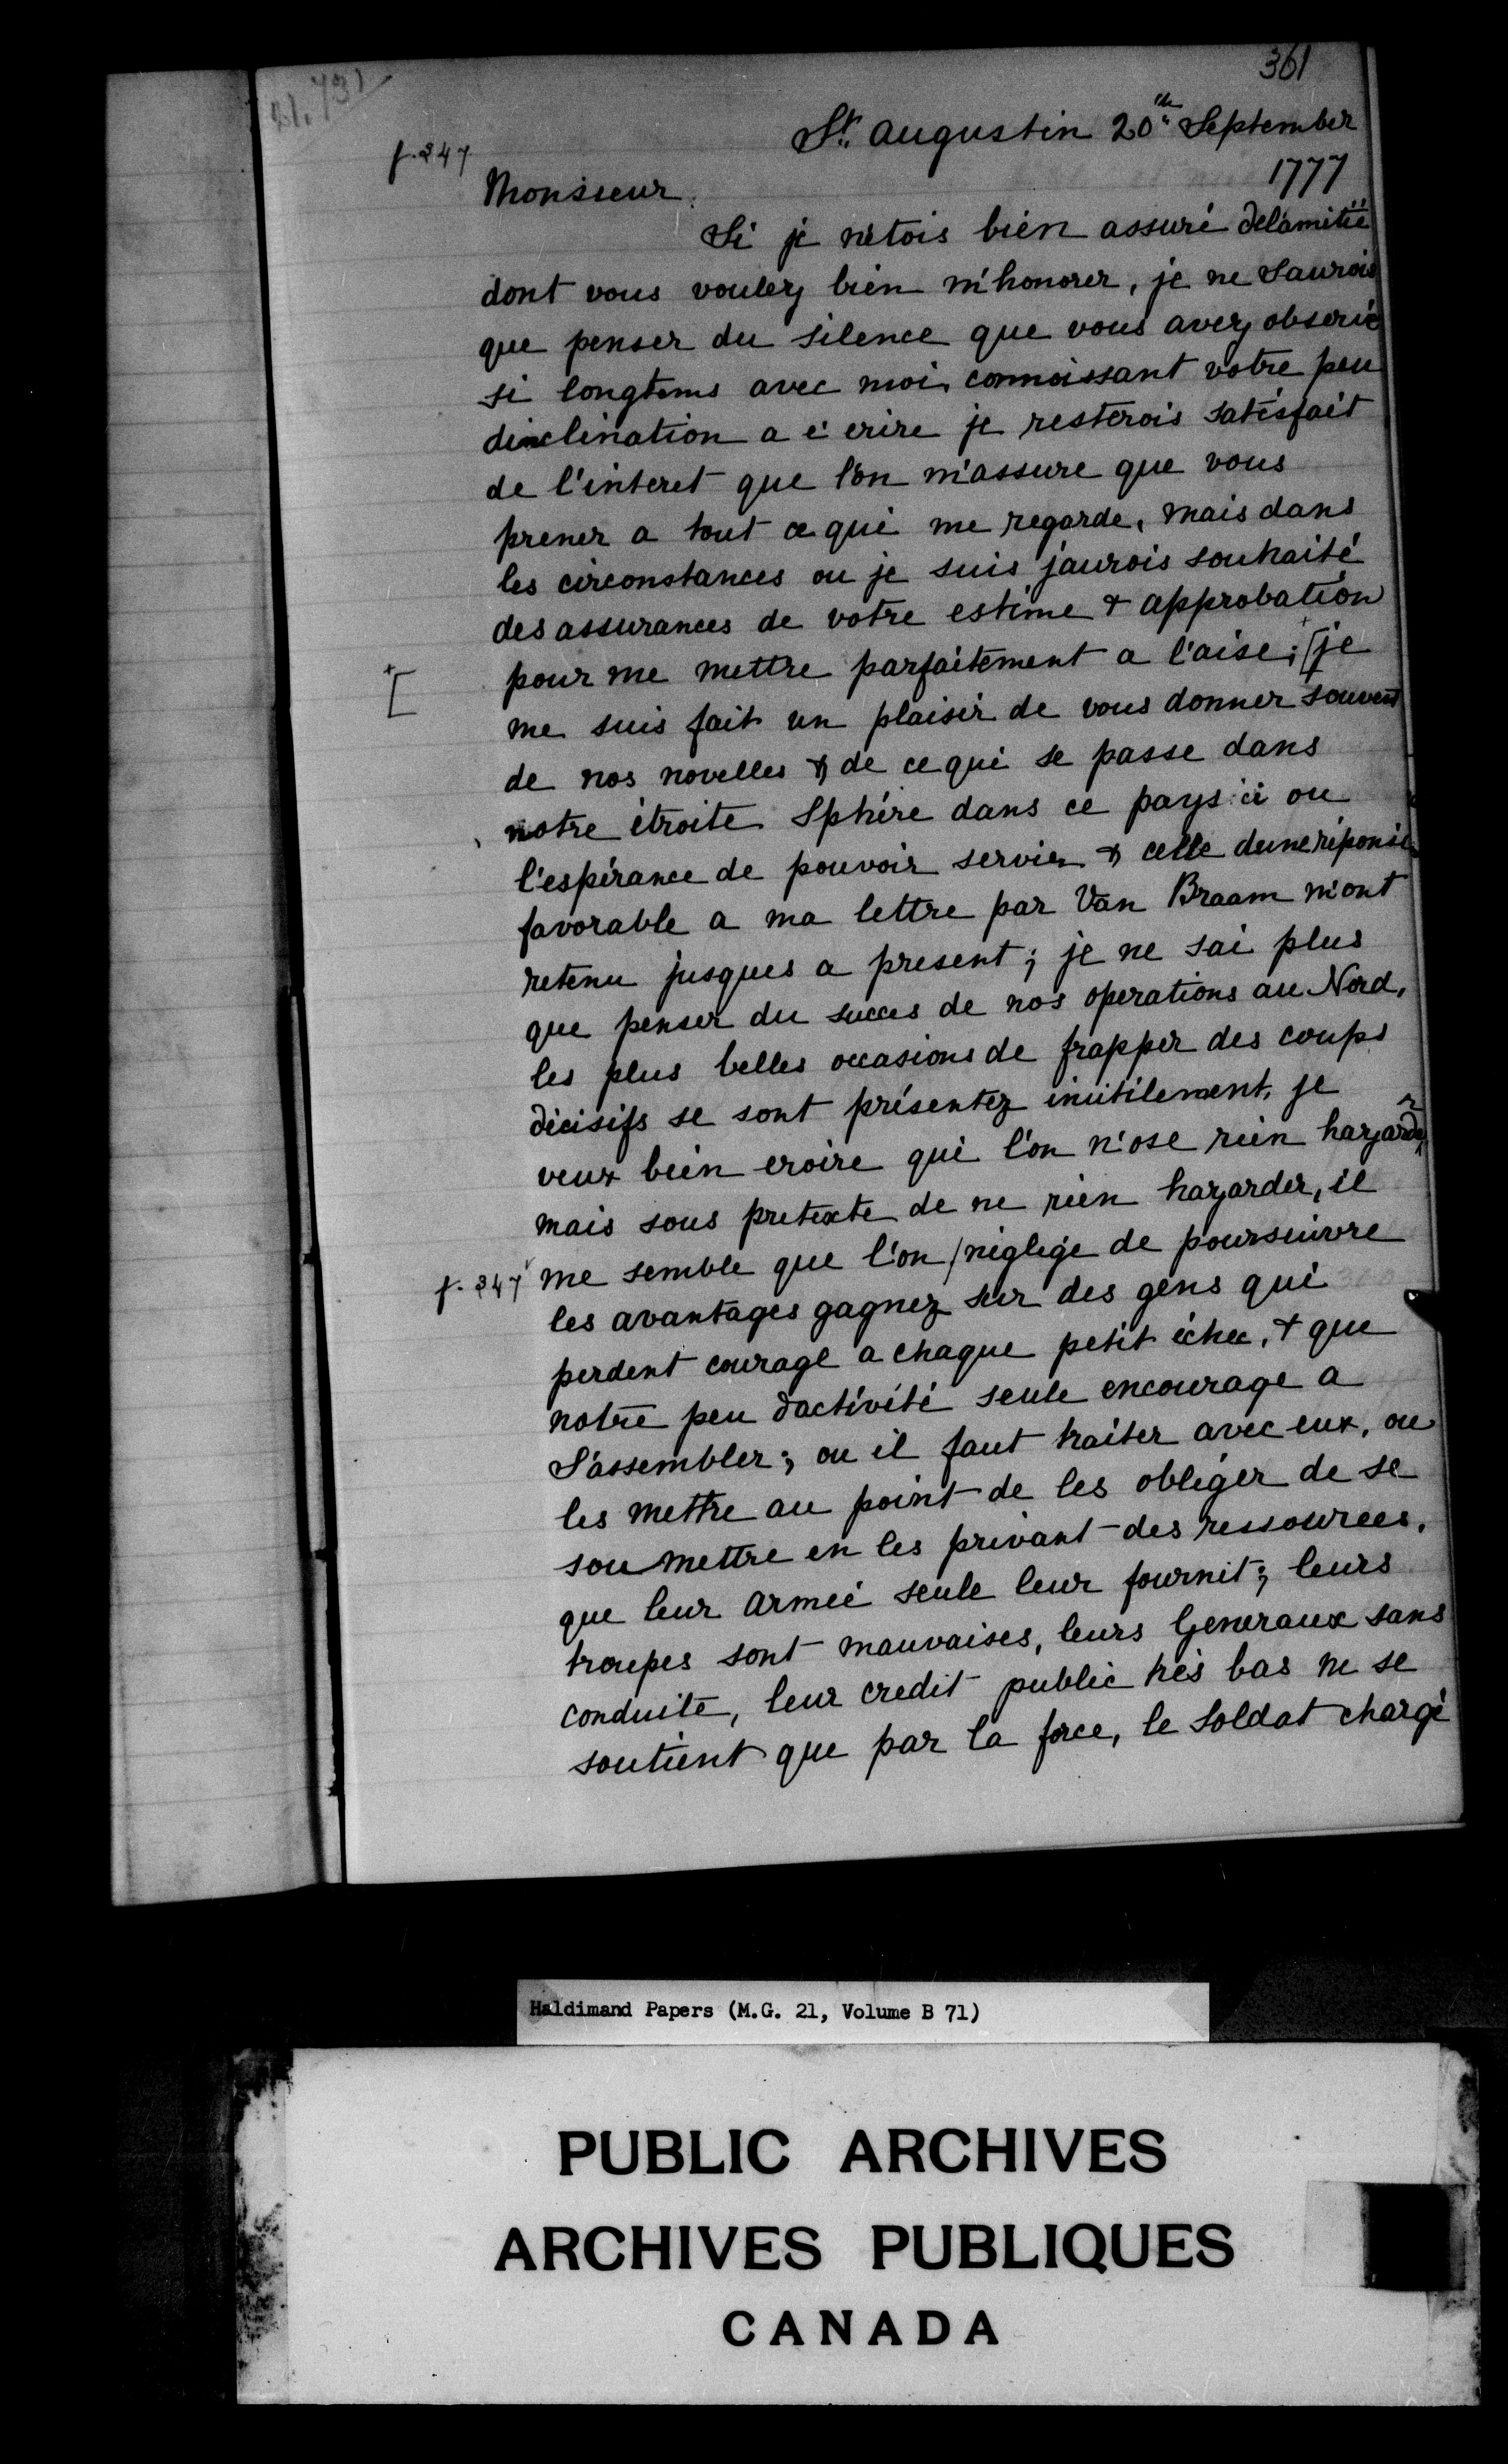 361
St. Augustin 20th September
f. 247
1777
Monsieur.
Si je n'etois bien assuré del'amitié
dont vous voulez bien m'honorer, je ne saurois
que penser du silence que vous avez observé
si longtems avec moi, connoissant votre peu
dinclination a é crire je resterois satisfait
de l'interet que l'on m'assure que vous
prener a tout ce qui me regarde, mais dans
les circonstances ou je suis j'aurois souhaité
des assurances de votre estime & approbation
pour me mettre parfaitement a l'aise; + [je
+ [
me suis fait un plaisir de vous donner souvent
de nos novelles & de ce qui se passe dans
notre étroite Sphére dans ce pays ci ou
l'espérance de pouvoir servir & celle dune réponse
favorable a ma lettre par Van Braam m'ont
retenu jusques a present; je ne sai plus
que penser du succes de nos operations au Nord,
les plus belles occasions de frapper des coups
décisifs se sont présentez inutilement, je
veux bien croire que l'on n'ose rien hazarder,
mais sous pretexte de ne rien hazarder, il
f. 247v me semble que l'on / néglige de poursuivre
les avantages gagnez sur des gens qui
perdent courage a chaque petit échec, & que
notre peu dactivité seule encourage a
S'assembler; ou il faut traiter avec eux, ou
les mettre au point de les obliger de se
sou mettre en les privant des ressources,
que leur armeé seule leur fournit; leurs
troupes sont mauvaises, leurs Generaux sans
conduite, leur credit public très bas ne se
soutient que par la force, le Soldat chargé
Haldimand Papers (M.G. 21, Volume B 71)
PUBLIC ARCHIVES
ARCHIVES PUBLIQUES
CANADA